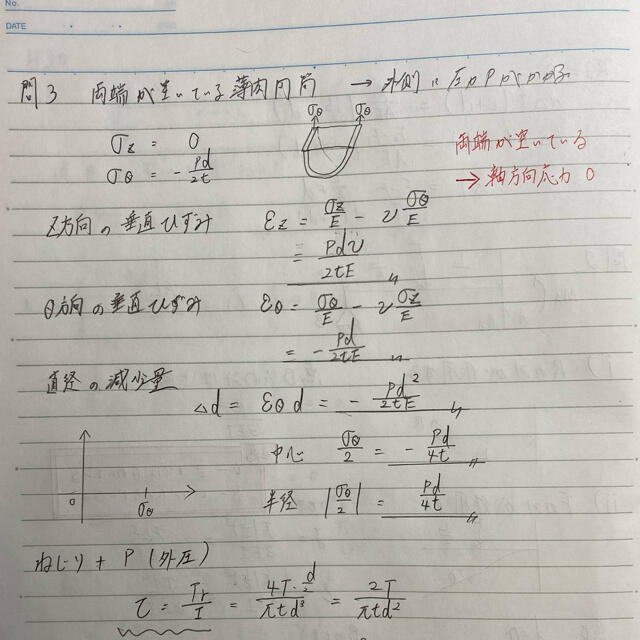 No.
DATE
問3 両端が空いている薄肉円筒 → 外側に圧力Pがかかる
σθ σθ
σz = 0
σθ = - Pd/2t
両端が空いている
→ 軸方向応力 0
Z方向の垂直ひずみ εz = σz/E - ν σθ/E
= Pdν/2tE
θ方向の垂直ひずみ εθ = σθ/E - ν σz/E
= - Pd/2tE
直径の減少量
△d = εθ d = - Pd²/2tE
中心 σθ/2 = - Pd/4t
0 σθ
半径 |σθ/2| = Pd/4t
ねじり + P (外圧)
τ = Tr/I = 4T·d/2 / πtd³ = 2T/πtd²